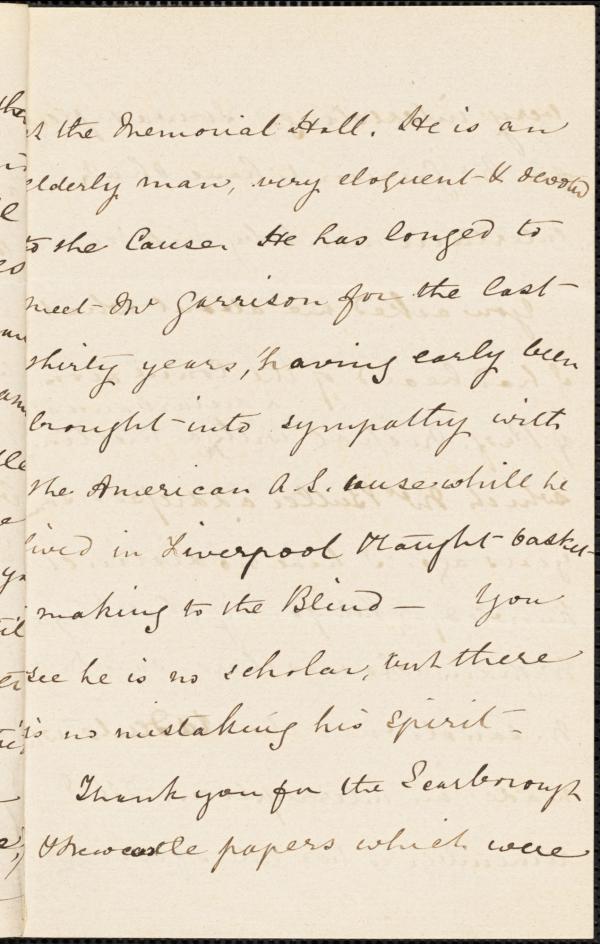 at the Memorial Hall. He is an
elderly man, very eloquent & devoted
to the Cause. He has longed to
meet Mr Garrison for the last
thirty years, having early been
brought into sympathy with
the American A.S. cause while he
lived in Liverpool & taught basket-
making to the Blind — You
see he is no scholar, but there
is no mistaking his spirit-
Thank you for the Scarborough
& Newcastle papers which were